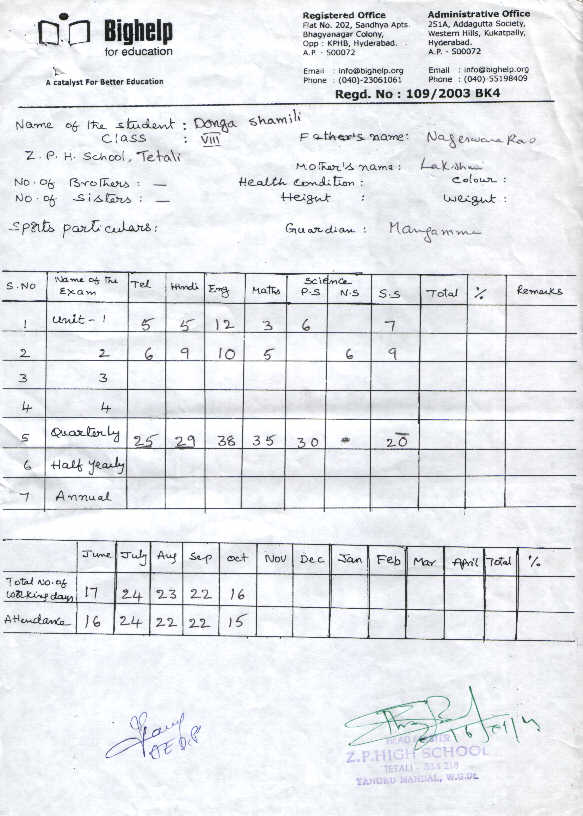 Bighelp
for education
A catalyst For Better Education
Registered Office
Flat No. 202, Sandhya Apts.
Bhagyanagar Colony,
Opp : KPHB, Hyderabad.
A.P. - 500072
Email : info@bighelp.org
Phone : (040)-23061061
Administrative Office
251A, Addagutta Society,
Western Hills, Kukatpally,
Hyderabad.
A.P. - 500072
Email : info@bighelp.org
Phone : (040)-55198409
Regd. No : 109/2003 BK4
Name of the student : Donga Shamili
Class : VIII Father's name: Nageswara Rao
Z. P. H. School, Tetali
Mother's name : Lakshmi
No. of Brothers : — Health condition : Colour :
No. of Sisters : — Height : Weight :
Sports particulars: Guardian : Mangamma
S.No Name of the Exam Tel Hindi Eng Maths Science P.S N.S S.S Total % Remarks
1 Unit - 1 5 5 12 3 6 7
2 2 6 9 10 5 6 9
3 3
4 4
5 Quarterly 25 29 38 35 30 - 20
6 Half yearly
7 Annual
June July Aug Sep Oct Nov Dec Jan Feb Mar April Total %
Total No. of working days 17 24 23 22 16
Attendance 16 24 22 22 15
HEAD MASTER
Z.P.HIGH SCHOOL
TETALI - 534 218
TANUKU MANDAL, W.G.Dt.